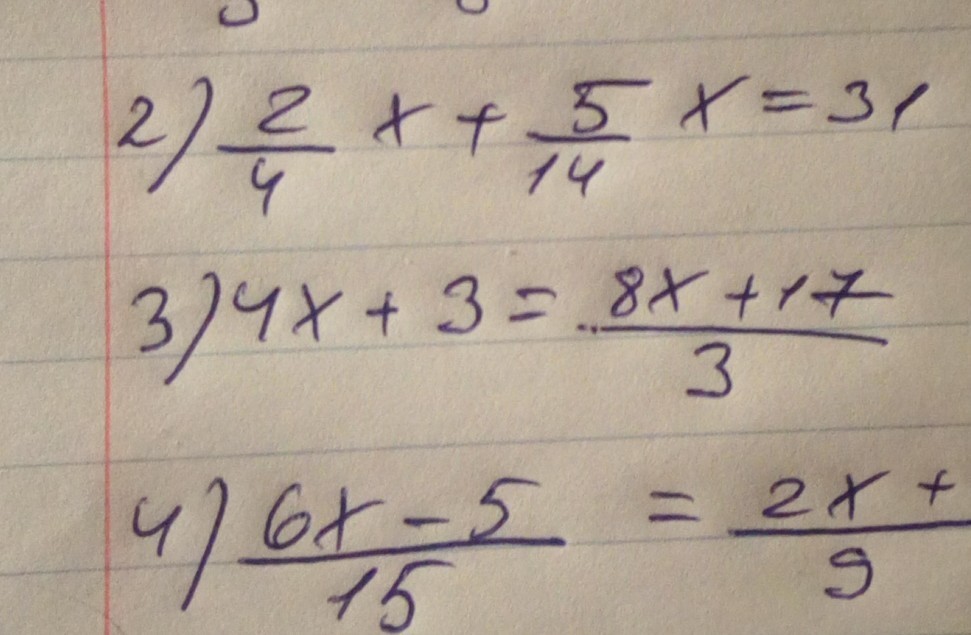 2) 2/4 x + 5/14 x = 31
3) 4x + 3 = 8x + 17/3
4) 6x - 5/15 = 2x +/9